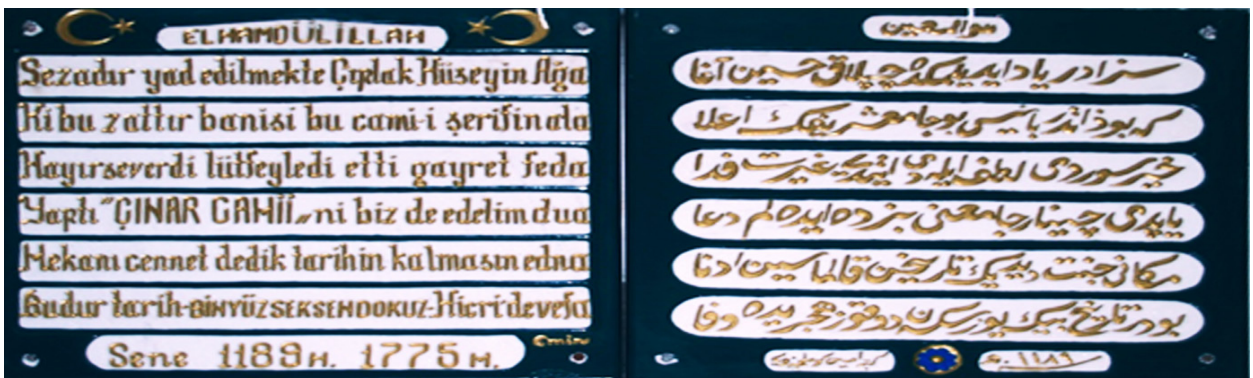 ELHAMDÜLİLLAH
Sezadır yad edilmekte Çıplak Hüseyin Ağa
Ki bu zattır banisi bu cami-i şerifin ala
Hayırseverdi lütfeyledi etti gayret feda
Yaptı "ÇINAR CAMİİ„ni biz de edelim dua
Mekanı cennet dedik tarihin kalmasın edna
Budur tarih-BİNYÜZSEKSENDOKUZ-Hicri'de vefa
Emin
Sene 1189 H. 1775 M.
هو المعين
سزادر یاد ایدیلمکده چپلاق حسین آغا
که بو ذاتدر بانیسی بو جامع شریفینک اعلا
خیرسوردی لطف ایله دی ایتدی غیرت فدا
یاپدی چینار جامعنی بزده ایده لم دعا
مکانی جنت دیدیک تاریخین قالماسین ادنا
بودر تاریخ بیک یوز سکسن دوقوز هجریده وفا
سنه ١١٨٩